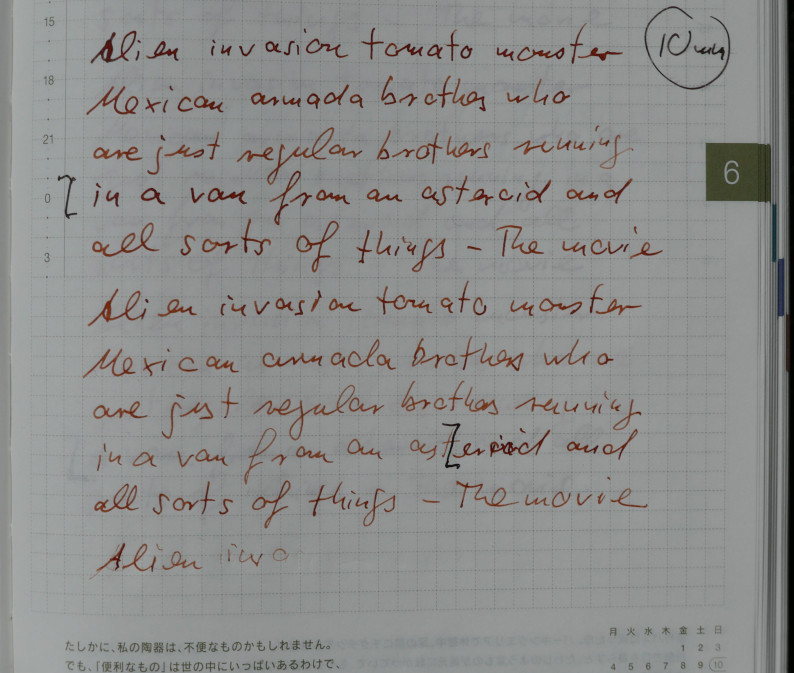 15
Alien invasion tomato monster
10 min
18
Mexican armada brothers who
21
are just regular brothers running
6
0
in a van from an asteroid and
3
all sorts of things – The movie
Alien invasion tomato monster
Mexican armada brothers who
are just regular brothers running
in a van from an asteroid and
all sorts of things – The movie
Alien inva
たしかに、私の陶器は、不便なものかもしれません。
でも、「便利なもの」は世の中にいっぱいあるわけで、
月 火 水 木 金 土 日
1 2 3
4 5 6 7 8 9 10